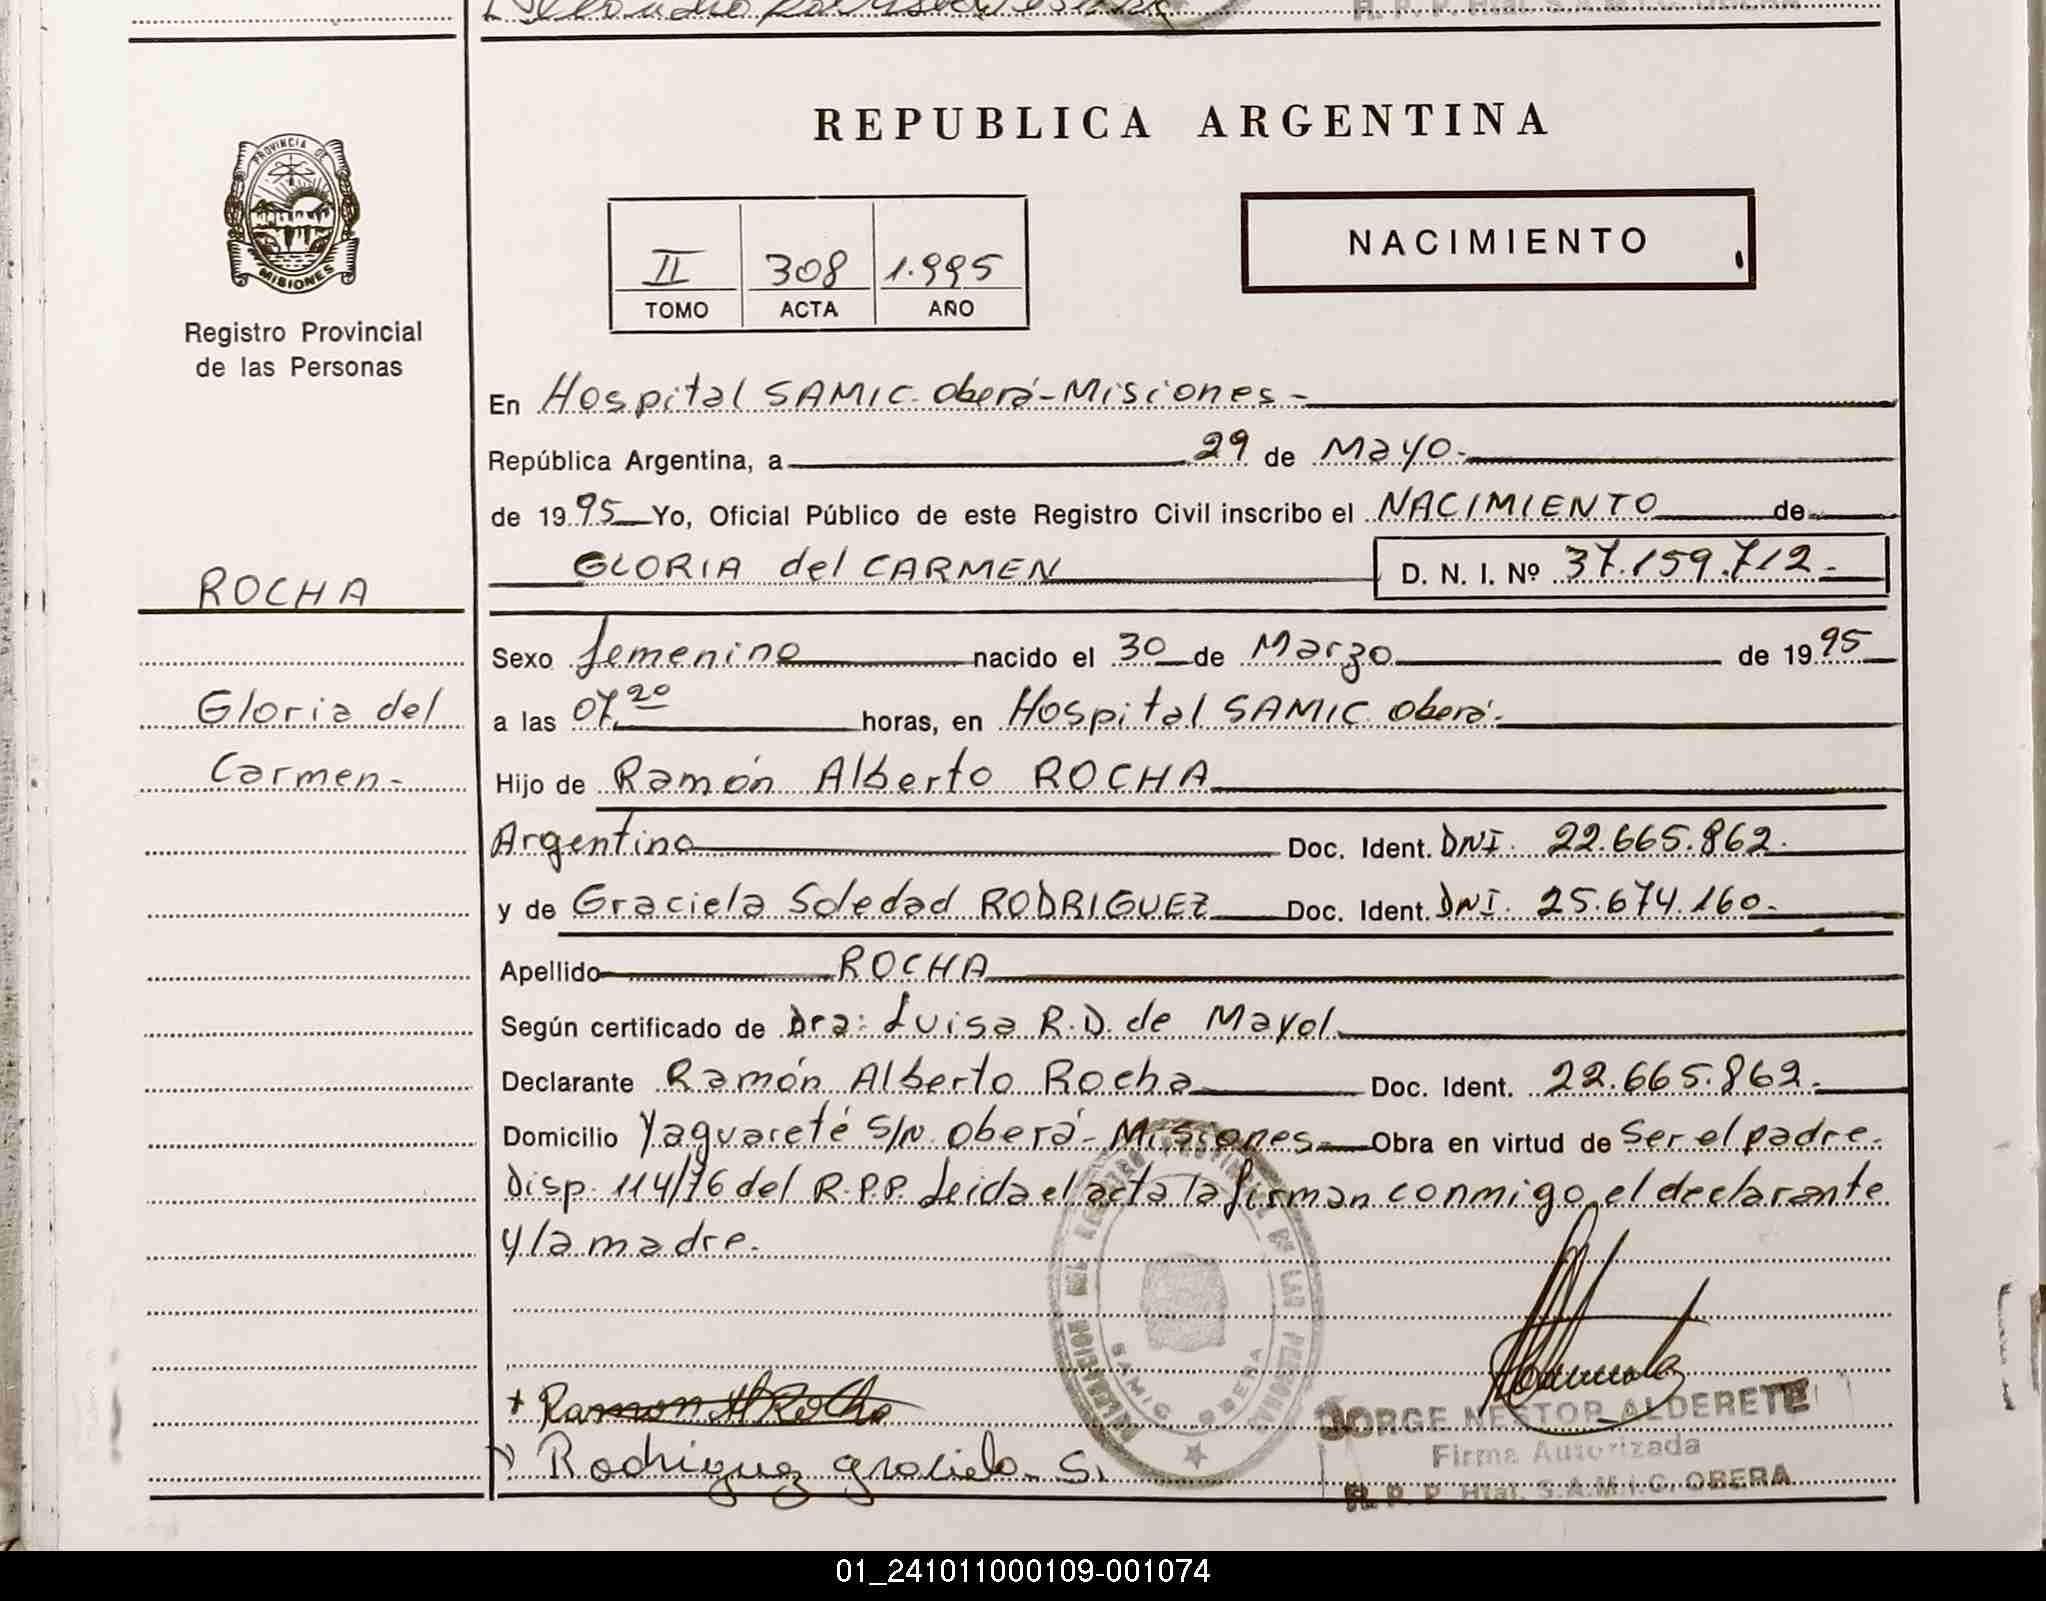 REPUBLICA ARGENTINA
PROVINCIA DE
MISIONES
Registro Provincial
de las Personas
NACIMIENTO
II 308 1.995
TOMO ACTA AÑO
En Hospital SAMIC. Oberá-Misiones-
República Argentina, a 29 de Mayo.
de 1995 Yo, Oficial Público de este Registro Civil inscribo el NACIMIENTO de
GLORIA del CARMEN D. N. I. Nº 37.159.712.-
ROCHA
Sexo femenino nacido el 30 de Marzo de 1995
Gloria del
a las 07.20 horas, en Hospital SAMIC. Oberá.
Carmen-
Hijo de Ramón Alberto ROCHA
Argentino Doc. Ident. DNI. 22.665.862.
y de Graciela Soledad RODRIGUEZ Doc. Ident. DNI. 25.674.160.
Apellido ROCHA
Según certificado de Dra: Luisa R.D. de Mayol
Declarante Ramón Alberto Rocha Doc. Ident. 22.665.862.
Domicilio Yaguareté S/N. Oberá- Misiones Obra en virtud de Ser el padre.
Disp. 114/76 del R.P.P. Leida el acta la firman conmigo, el declarante
y la madre.
SAMIC OBERA
+ Ramon A Rocha
JORGE NESTOR ALDERETE
Firma Autorizada
Rodriguez Graciela S.
R. P. P. Htal. S.A.M.I.C. OBERA
01_241011000109-001074